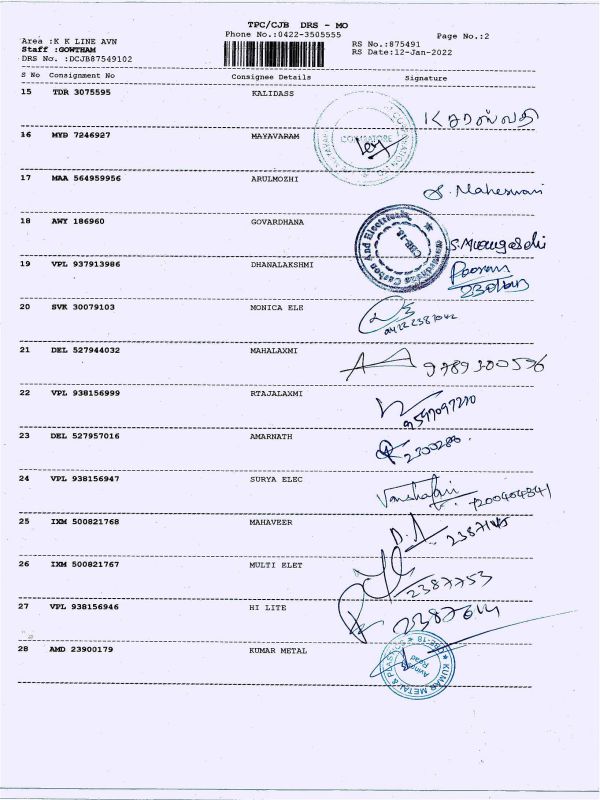 TPC/CJB DRS - MO
Area :K K LINE AVN
Phone No.:0422-3505555
Page No.:2
Staff :GOWTHAM
RS No.:875491
DRS No. :DCJB87549102
RS Date:12-Jan-2022
S No Consignment No Consignee Details Signature
15 TDR 3075595 KALIDASS
16 MYD 7246927 MAYAVARAM
COIMBATORE
17 MAA 564959956 ARULMOZHI
S. Maheswari
18 AWY 186960 GOVARDHANA
Carbon And Electricals
CBE-18.
19 VPL 937913986 DHANALAKSHMI
20 SVK 30079103 MONICA ELE
0422 2387042
21 DEL 527944032 MAHALAXMI
9789300536
22 VPL 938156999 RTAJALAXMI
9597097270
23 DEL 527957016 AMARNATH
2300286
24 VPL 938156947 SURYA ELEC
25 IXM 500821768 MAHAVEER
26 IXM 500821767 MULTI ELET
2387753
27 VPL 938156946 HI LITE
28 AMD 23900179 KUMAR METAL
KUMAR METAL & PLASTICS * CBE-18 *
Road